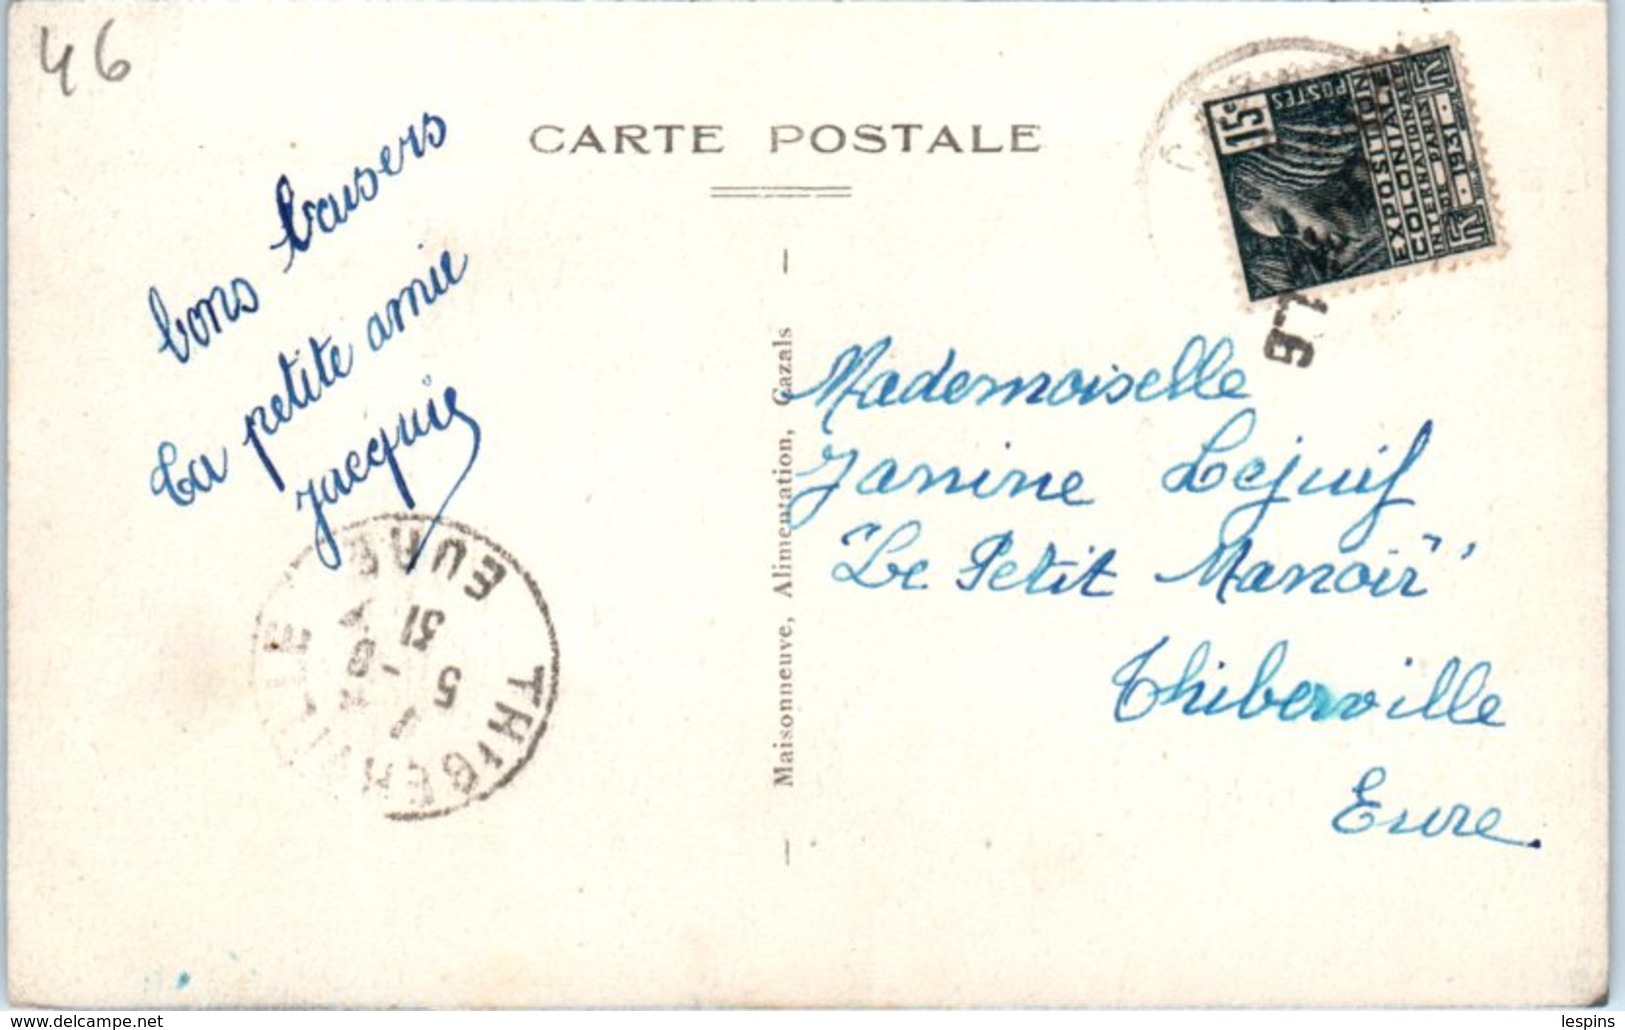 46
CARTE POSTALE
15c
POSTES
EXPOSITION
COLONIALE
INTERNATIONALE
DE PARIS
1931
bons baisers
ta petite amie
jacquie
Maisonneuve, Alimentation, Cazals
Mademoiselle
Janine Lejuif
"Le Petit Manoir"
Thiberville
Eure.
THIBERVILLE
EURE
5
31
lespins